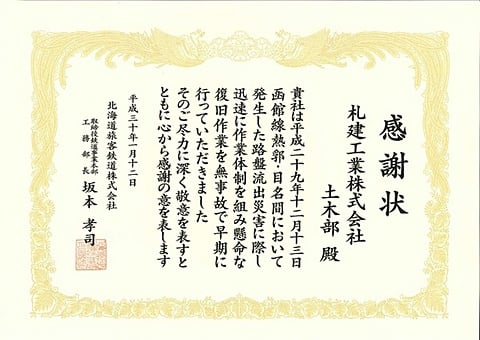 感謝状
札建工業株式会社
土木部 殿
貴社は平成二十九年十二月十三日
函館線熱郛・目名間において
発生した路盤流出災害に際し
迅速に作業体制を組み懸命な
復旧作業を無事故で早期に
行っていただきました
そのご尽力に深く敬意を表すと
ともに心から感謝の意を表します
平成三十年一月十二日
北海道旅客鉄道株式会社
取締役鉄道事業本部
工務部長 坂本孝司